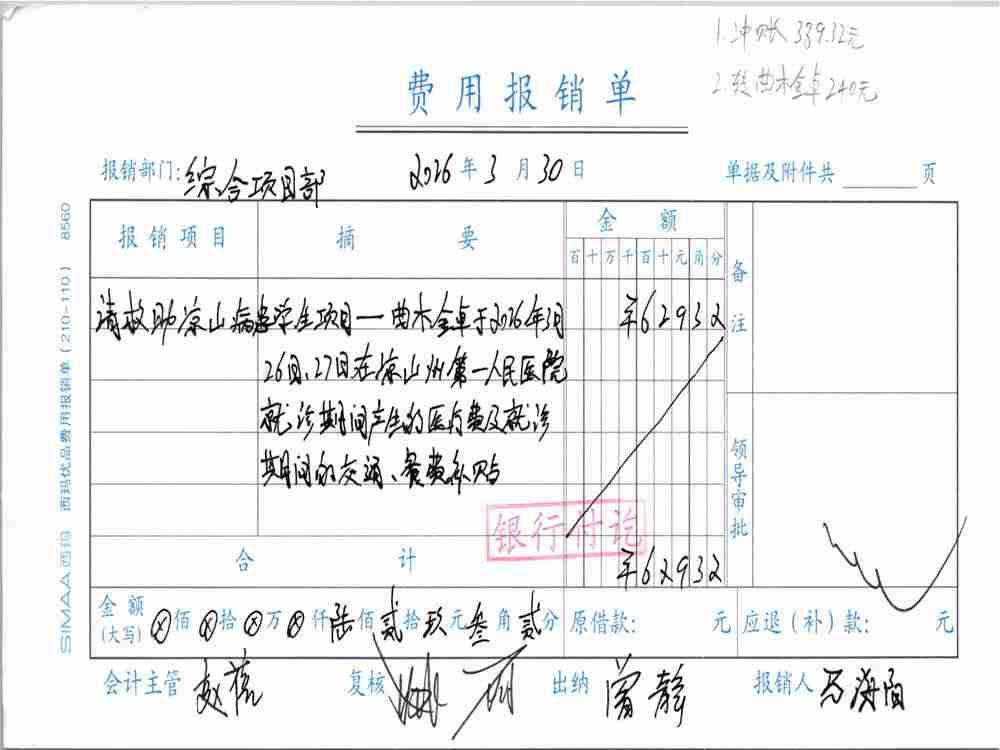 1.冲账 339.32元
2.转曲木金卓 240元
费用报销单
报销部门:综合项目部 2026年3月30日 单据及附件共 页
报销项目 摘要 金额 备注
百十万千百十元角分
请救助凉山病患学生项目一曲木金卓于2026年3月 ¥62932
26日、27日在凉山州第一人民医院
就诊期间产生的医疗费及就诊
期间的交通、餐费补贴
领导审批
银行付讫
合计 ¥62932
金额(大写) ⊗佰⊗拾⊗万⊗仟陆佰贰拾玖元叁角贰分 原借款: 元 应退(补)款: 元
会计主管 复核 出纳 曾静 报销人 马海阳
SIMAA西玛 西玛优品费用报销单(210-110) 8560